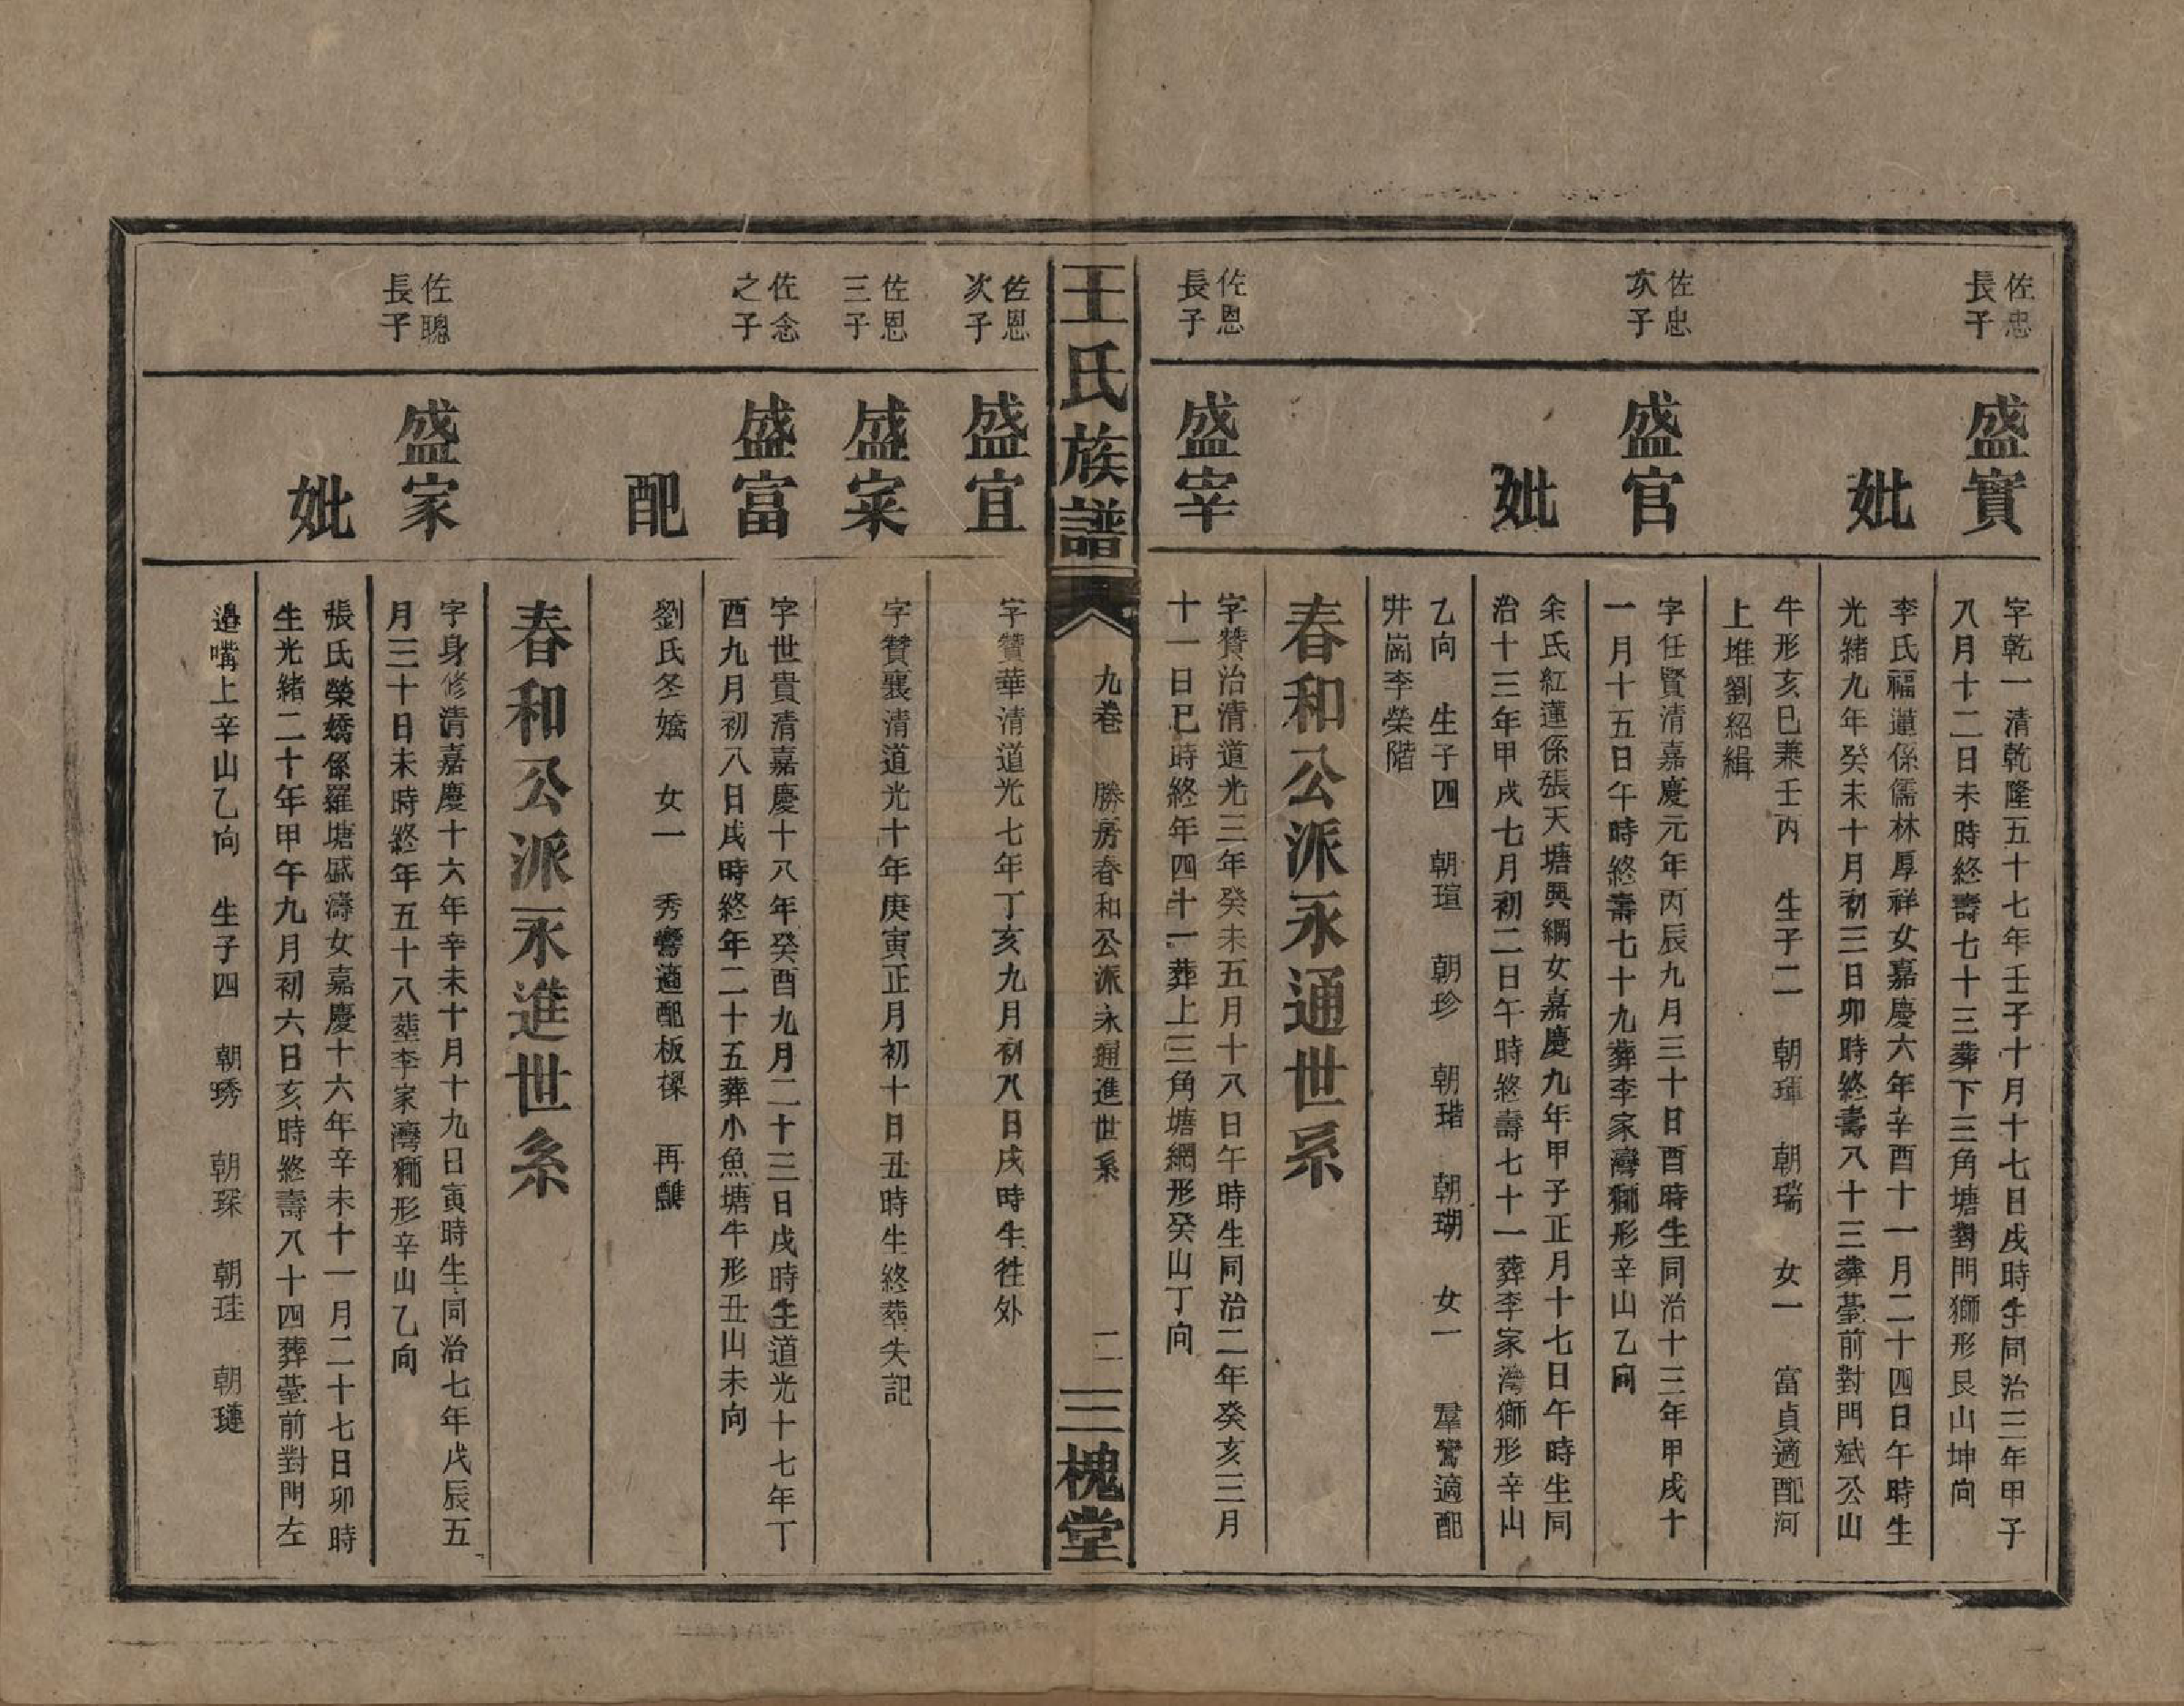 佐忠
長子
盛實
字乾一清乾隆五十七年壬子十月十七日戌時生同治三年甲子
八月十二日未時終壽七十三葬下三角塘對門獅形艮山坤向
妣
李氏福蓮係儒林厚祥女嘉慶六年辛酉十一月二十四日午時生
光緒九年癸未十月初三日卯時終壽八十三葬臺前對門斌公山
牛形亥巳兼壬丙 生子二 朝琿 朝瑞 女一 富貞適配河
上堆劉紹緝
佐忠
次子
盛官
字任賢清嘉慶元年丙辰九月三十日酉時生同治十三年甲戌十
一月十五日午時終壽七十九葬李家灣獅形辛山乙向
妣
余氏紅蓮係張天塘興綱女嘉慶九年甲子正月十七日午時生同
治十三年甲戌七月初二日午時終壽七十一葬李家灣獅形辛山
乙向 生子四 朝瑄 朝珍 朝瑎 朝瑚 女一 羣鸞適配
井崗李榮階
春和公派永通世系
佐恩
長子
盛宰
字贊治清道光三年癸未五月十八日午時生同治二年癸亥三月
十一日巳時終年四十一葬上三角塘網形癸山丁向
王氏族譜
九卷 勝房春和公派永通進世系
二
三槐堂
佐恩
次子
盛宜
字贊華清道光七年丁亥九月初八日戌時生徃外
佐恩
三子
盛寀
字贊襄清道光十年庚寅正月初十日丑時生終葬失記
佐念
之子
盛富
字世貴清嘉慶十八年癸酉九月二十三日戌時生道光十七年丁
酉九月初八日戌時終年二十五葬小魚塘牛形丑山未向
配
劉氏冬嬌 女一 秀鸞適配板樑 再醮
春和公派永進世系
佐聰
長子
盛家
字身修清嘉慶十六年辛未十月十九日寅時生同治七年戊辰五
月三十日未時終年五十八葬李家灣獅形辛山乙向
妣
張氏榮嬌係羅塘盛濤女嘉慶十六年辛未十一月二十七日卯時
生光緒二十年甲午九月初六日亥時終壽八十四葬臺前對門左
邉嘴上辛山乙向 生子四 朝琇 朝琛 朝珪 朝璉